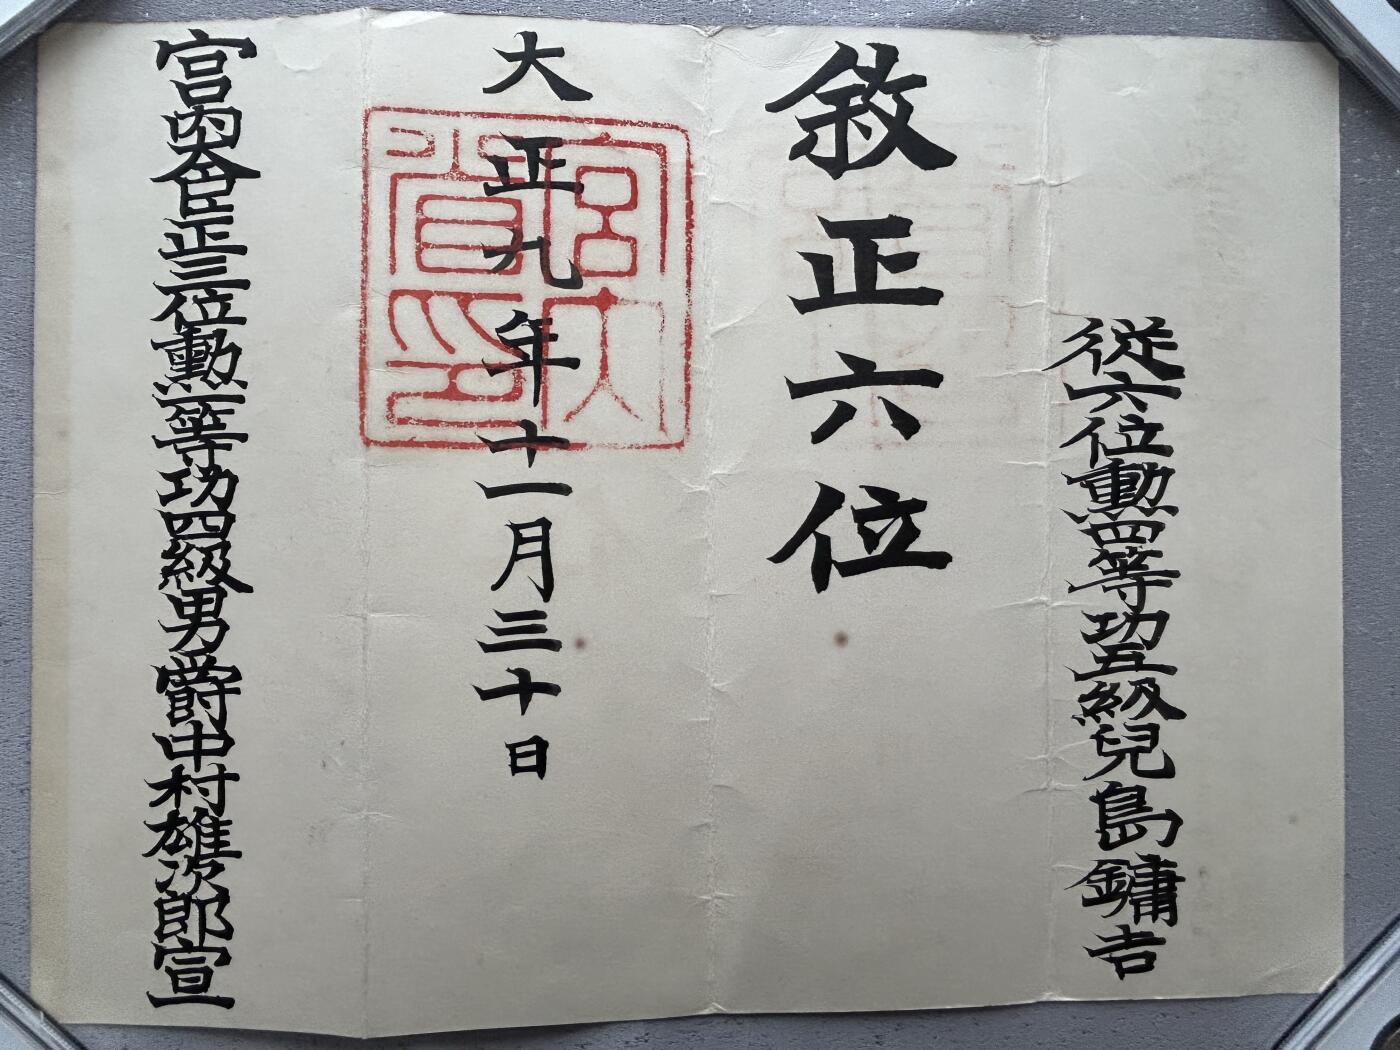 従六位勲四等功五級兒島鏞吉
敘正六位
大正九年十一月三十日
宮内省印
宮内大臣正三位勲一等功四級男爵中村雄次郎宣